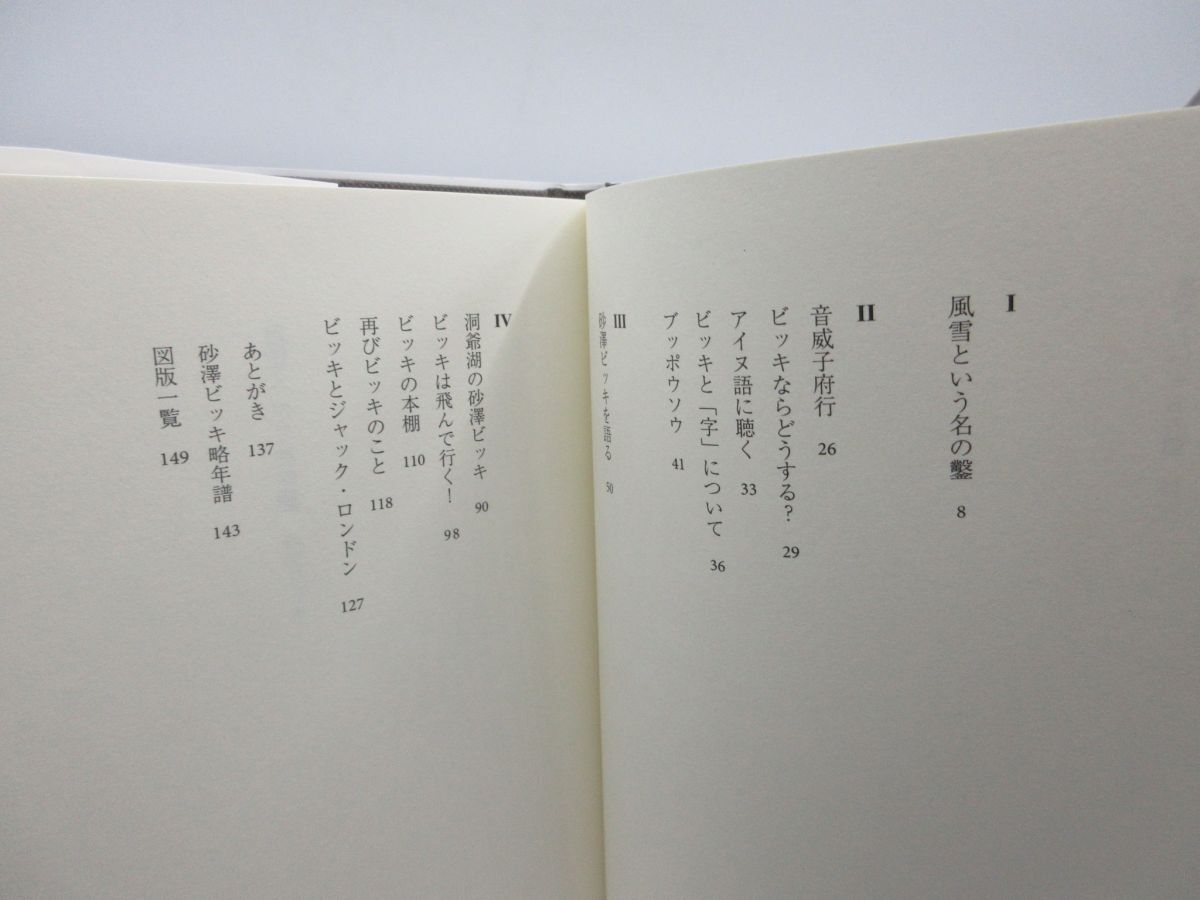 I
風雪という名の鑿 8
II
音威子府行 26
ビッキならどうする? 29
アイヌ語に聴く 33
ビッキと「字」について 36
ブッポウソウ 41
III
砂澤ビッキを語る 50
IV
洞爺湖の砂澤ビッキ 90
ビッキは飛んで行く! 98
ビッキの本棚 110
再びビッキのこと 118
ビッキとジャック・ロンドン 127
あとがき 137
砂澤ビッキ略年譜 143
図版一覧 149